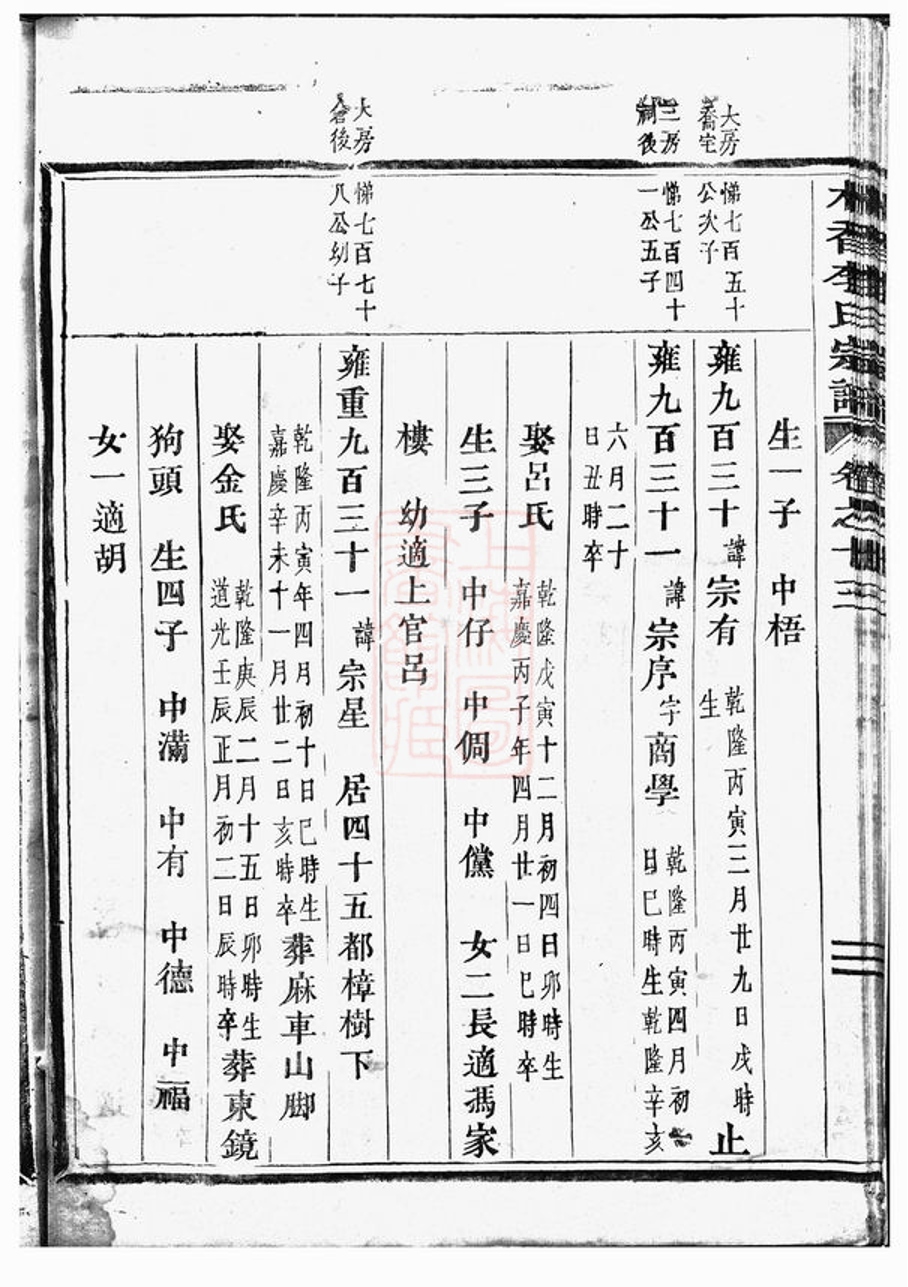 李氏宗譜 卷之十三
生一子 中梧
大房喬宅
悌七百五十公次子
雍九百三十 諱宗有 乾隆丙寅三月廿九日戌時生 止
三房祠後
悌七百四十一公五子
雍九百三十一 諱宗序 字商學 乾隆丙寅四月初 日巳時生乾隆辛亥
六月二十日丑時卒
娶呂氏 乾隆戊寅十二月初四日卯時生嘉慶丙子年四月廿一日巳時卒
生三子 中仔 中倜 中儻 女二長適馮家
樓 幼適上官呂
大房倉後
悌七百七十八公幼子
雍重九百三十一 諱宗星 居四十五都樟樹下
乾隆丙寅年四月初十日巳時生嘉慶辛未十一月廿二日亥時卒葬麻車山脚
娶金氏 乾隆庚辰二月十五日卯時生道光壬辰正月初二日辰時卒葬東鏡
狗頭 生四子 中滿 中有 中德 中福
女一適胡